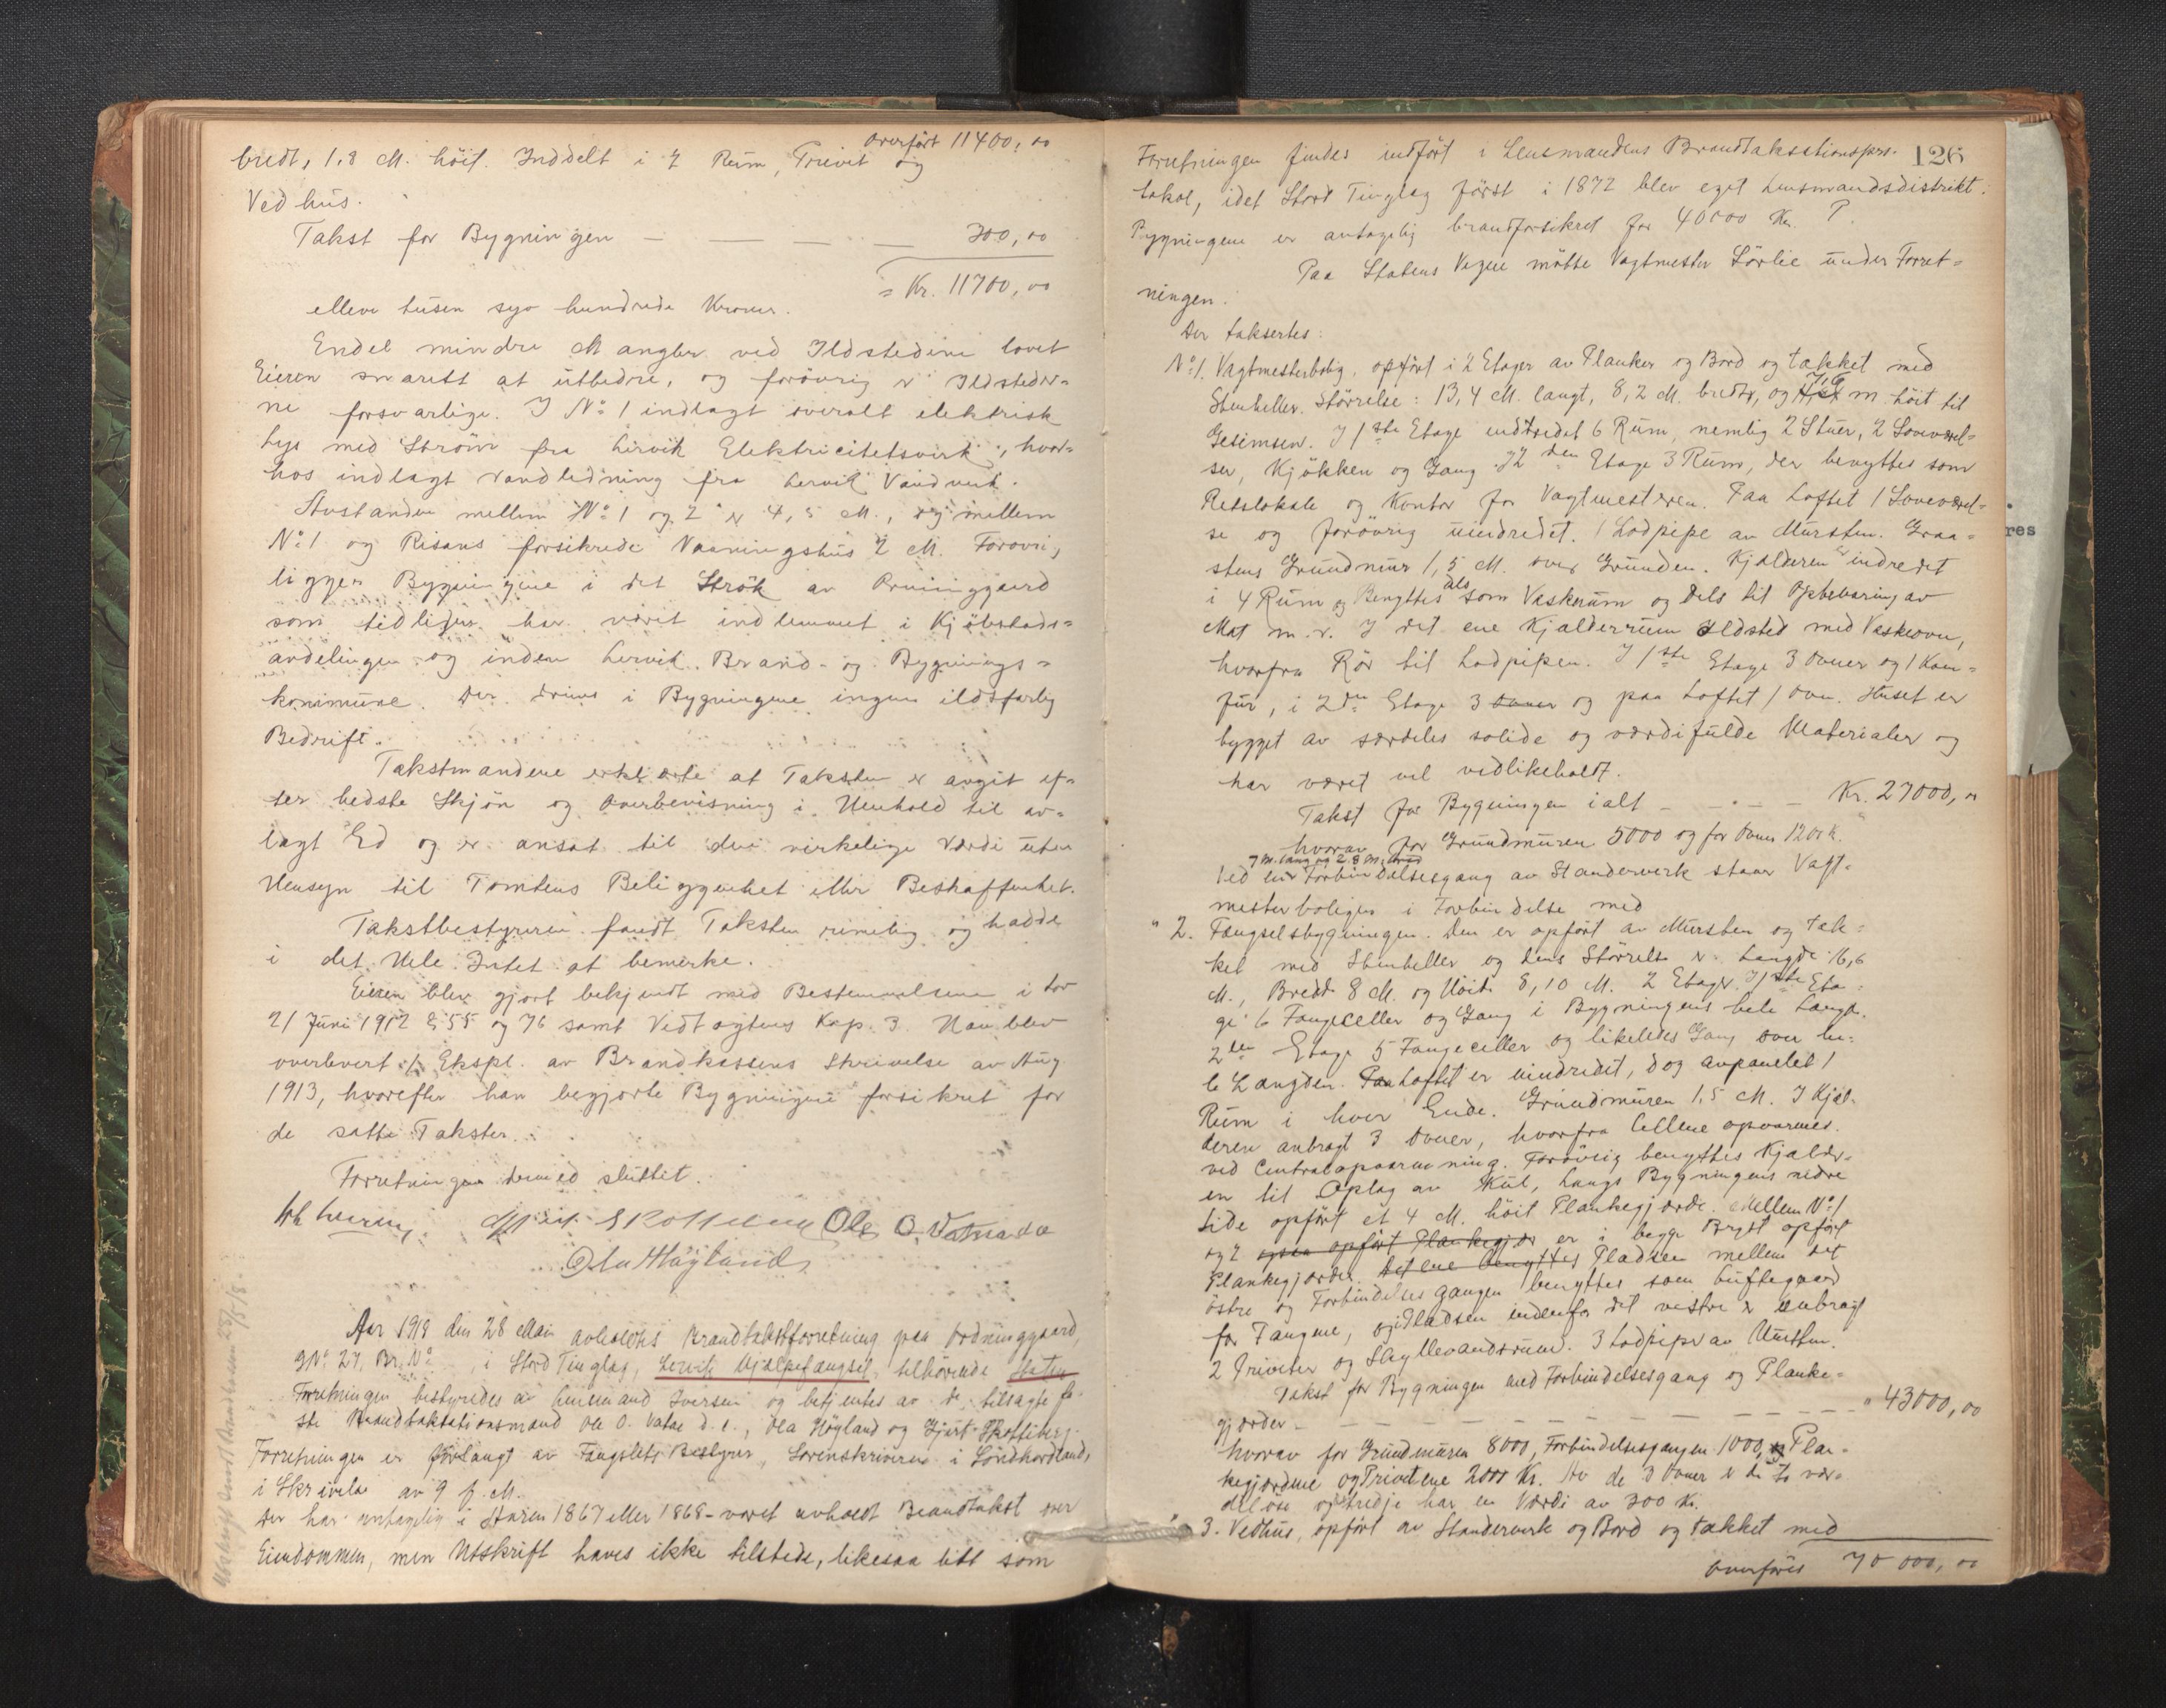 overført 11400,00
bredt, 1.8 M. höit. Inddelt i 2 Rum, Privit og
Vedhus.
Takst for Bygningen — — — — 300,00
= Kr. 11700,00
elleve tusen syv hundrede Kroner.
Endel mindre Mangler ved Ildstedene lovet
Eieren snarest at utbedre, og forövrig er Ildsteder-
ne forsvarlige. I No 1 indlagt overalt elektrisk
Lys med Ström fra Lervik Elektricitetsverk, hvor-
hos indlagt vandledning fra Lervik Vandverk.
Avstanden mellem No 1 og 2 er 4,5 M., og mellem
No 1 og Risans forsikrede Vaaningshus 2 M. Forövrig
ligger Bygningene i det Strök av Grunnggaard
som tidligere har været indlemmet i Kjöbstads-
avdelingen og inden Lervik Brand- og Bygnings-
kommune. Der drives i Bygningene ingen ildsfarlig
Bedrift.
Takstmændene erklærte at Taksten er avgit ef-
ter bedste Skjön og Overbevisning i Henhold til av-
lagt Ed og er ansat til den virkelige Værdi uten
Hensyn til Tomtens Beliggenhet eller Beskaffenhet.
Takstbestyreren fandt Taksten rimelig og hadde
i det Hele Intet at bemerke.
Eieren blev gjort bekjendt med Bestemmelsene i Lov
21 Juni 1912 § 55 og 76 samt Vedtægtens Kap. 3. Han blev
overlevert 1 Ekspl. av Brandkassens Skrivelse av Aug.
1913, hvorefter han begjærte Bygningene forsikret for
de satte Takster.
Forretningen dermed sluttet.
Gjert Skotteberg Ole O. Vatnada
Ola Høyland
Aar 1918 den 28 Mai avholdtes Brandtakstforretning paa Ordninggaard,
GNo 27, Br. No i Stord Tinglag, Lervik Hjælpefængsel tilhörende Staten
Forretningen bestyredes av Lensmand Iversen og betjentes av de tilsagte fa-
ste Brandtakstationsmænd Ole O. Vatna d. e., Ola Höyland og Gjert Skotteberg.
Forretningen er forlangt av Fængslets Bestyrer, Sorenskriveren i Söndhordland,
i Skrivelse av 9 f. M.
Der har antagelig i Aaren 1867 eller 1868 været avholdt Brandtakst over
Eiendommen, men Utskrift haves ikke tilstede, likesaa litt som
126
Forretningen findes indfört i Lensmandens Brandtakstionspro-
tokol, idet Stord Tinglag först i 1872 blev eget Lensmandsdistrikt.
Bygningene er antagelig brandforsikret for 40000 Kr ?.
Paa Statens Vegne mötte Vagtmester Sörlie under Forret-
ningen.
Der taksertes:
No 1. Vagtmesterbolig, opfört i 2 Etager av Planker og Bord og tækket med
Stenheller. Störrelse: 13,4 M. langt, 8,2 M. bredt, og 7,6 m höit til
Gesimsen. I 1ste Etage indredet 6 Rum, nemlig 2 Stuer, 2 Soveværel-
ser, Kjökken og Gang. I 2den Etage 3 Rum, der benyttes som
Retslokale og Kontor for Vagtmesteren. Paa Loftet 1 Soveværel-
se og forövrig uindredet. 1 Lodpipe av Mursten. Graa-
stens Grundmur 1,5 M. over Grunden. Kjælderen er indredet
i 4 Rum og Benyttes dels som Vaskerum og dels til Opbevaring av
Mat m. v. I det ene Kjælderrum Ildsted med Vaskeovn,
hvorfra Rör til Lodpipen. I 1ste Etage 3 Ovner og 1 Kom-
für, i 2den Etage 3 Ovner og paa Loftet 1 Ovn. Huset er
bygget av særdeles solide og værdifulde Materialer og
har været vel vedlikeholdt.
Takst for Bygningen ialt — — — — Kr. 27000,00
hvorav for Grundmuren 5000 og for Ovner 1200 K.
7 M. lang og 2,8 M. bred
Ved en Forbindelsesgang av Standerverk staar Vagt-
mesterboligen i Forbindelse med
" 2. Fængselsbygningen. Den er opfört av Mursten og tæk-
ket med Stenheller og dens Störrelse er Længde 16,6
M., Bredde 8 M. og Höide 8,10 M. 2 Etager. I 1ste Eta-
ge 6 Fangeceller og Gang i Bygningens hele Længde.
2den Etage 5 Fangeceller og likeledes Gang over he-
le Længden. Paa Loftet er uindredet, dog avpanelet 1
Rum i hver Ende. Grundmuren 1,5 M. I Kjæl-
deren anbragt 3 Ovner, hvorfra Cellene opvarmes
ved Centralopvarmning. Forövrig benyttes Kjælder-
en til Oplag av Kul. Langs Bygningens nedre
Side opfört et 4 M. höit Plankegjærde. Mellem No 1
og 2 ogsaa opfört Plankegjær er i begge Bryst opfört
Plankegjærder. Det ene benyttes Pladsen mellem det
östre og Forbindelsesgangen benyttes som Luftegaard
for Fangene, og Pladsen indenfor det vestre er anbragt
2 Priveter og Skyllevandsrum. 3 Lodpiper av Mursten.
Takst for Bygningen med Forbindelsesgang og Planke-
gjærder — — — — — — — — — " 43000,00
hvorav for Grundmuren 8000, Forbindelsesgangen 1000, og Plan-
kegjærdene og Privetene 2000 Kr. Av de 3 Ovner er de To vær-
dilöse og tredje har en Værdi av 300 Kr.
" 3. Vedhus, opfört av Standerverk og Bord og tækket med
overföres 70 000,00
res